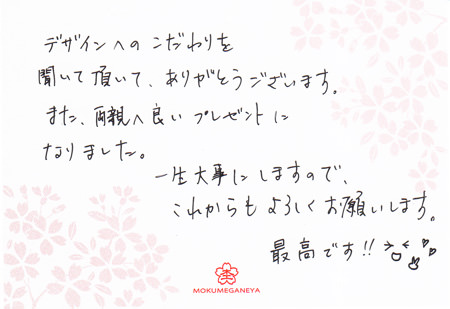 デザインへの こだわりを
聞いて頂いて、ありがとうございます。
また、両親へ良い プレゼントに
なりました。
一生大事にしますので、
これからも よろしくお願いします。
最高です!!
MOKUMEGANEYA